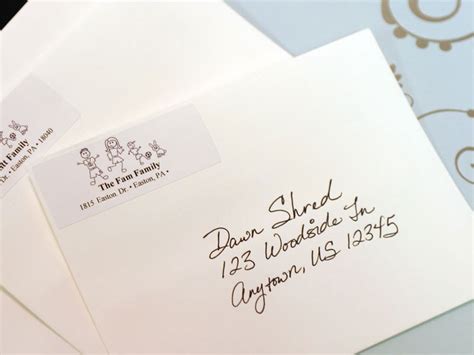 tt Family
Easton, PA • 18040
The Fam Family
1815 Easton Dr. • Easton, PA •
Dawn Shred
123 Woodside Ln
Anytown, US 12345